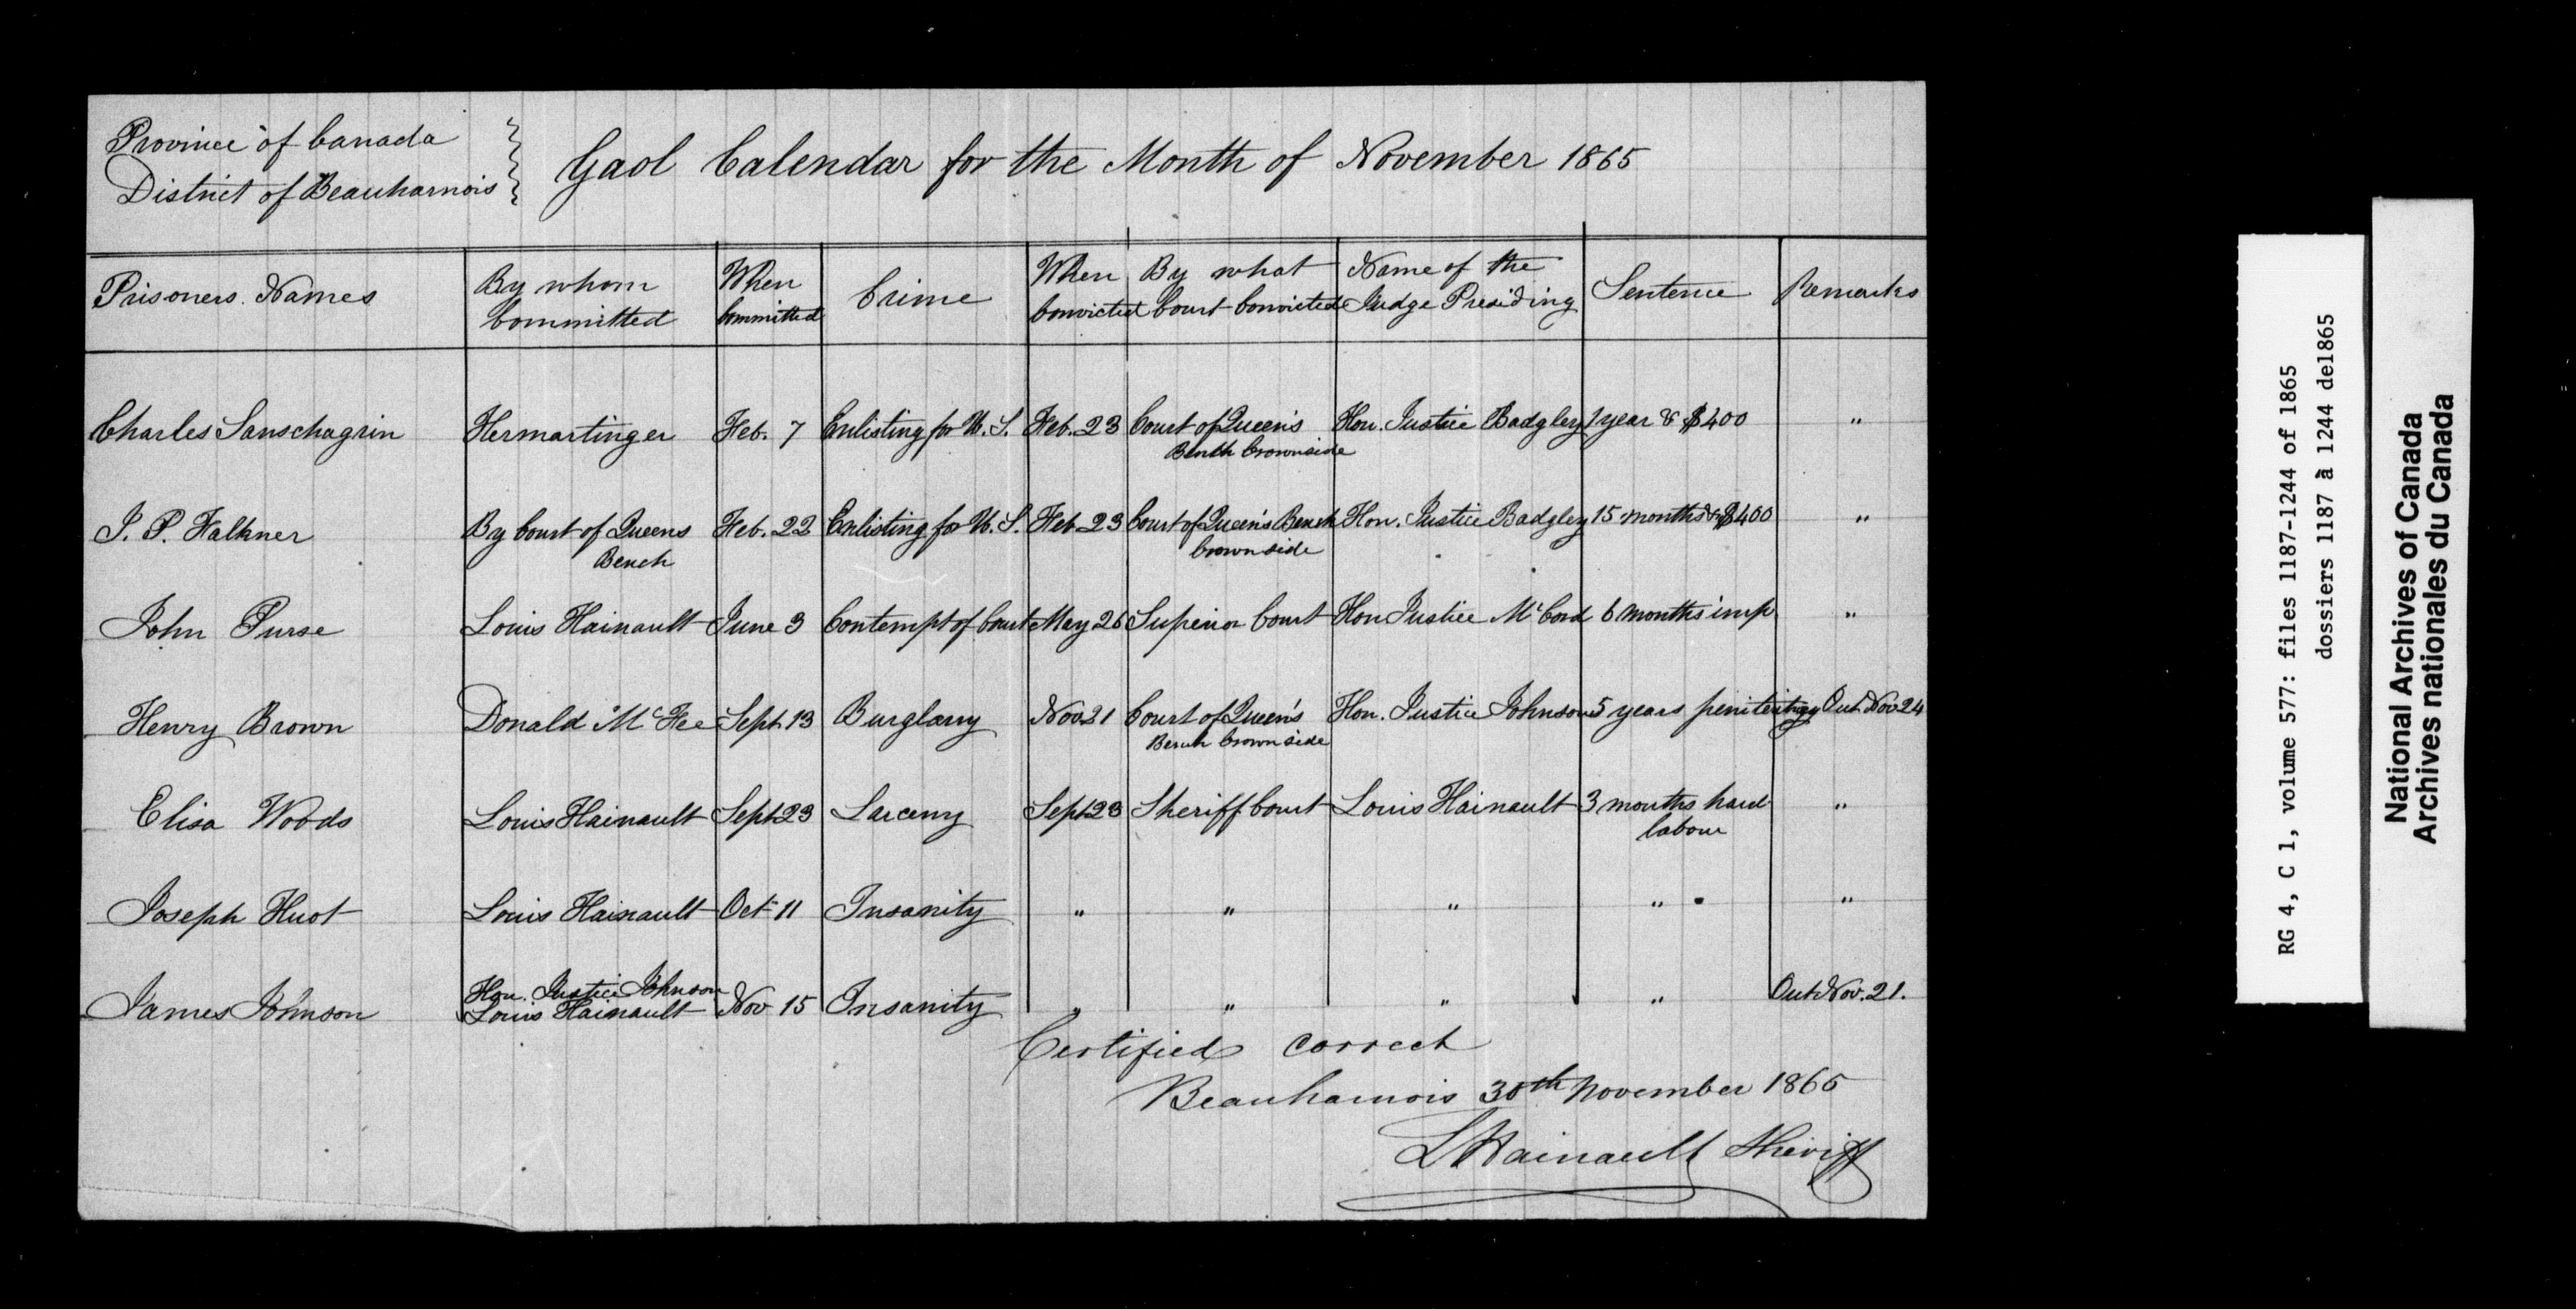 Province of Canada
District of Beauharnois
Gaol Calendar for the Month of November 1865
Prisoners Names | By whom Committed | When Committed | Crime | When Convicted | By what Court Convicted | Name of the Judge Presiding | Sentence | Remarks
Charles Sanschagrin | Hermartinger | Feb. 7 | Enlisting for U. S. | Feb. 23 | Court of Queen's Bench Crown side | Hon. Justice Badgley | 1 year & $400 | "
J. P. Falkner | By Court of Queens Bench | Feb. 22 | Enlisting for U. S. | Feb. 23 | Court of Queen's Bench Crown side | Hon. Justice Badgley | 15 months & $400 | "
John Purse | Louis Hainault | June 3 | Contempt of Court | May 26 | Superior Court | Hon Justice McCord | 6 months imp | "
Henry Brown | Donald McFee | Sept. 13 | Burglary | Nov 21 | Court of Queen's Bench Crown side | Hon. Justice Johnson | 5 years | Out Nov 24
Elisa Woods | Louis Hainault | Sept 23 | Larceny | Sept 23 | Sheriff Court | Louis Hainault | 3 months hard labour | "
Joseph Huot | Louis Hainault | Oct 11 | Insanity | " | " | " | " | "
James Johnson | Hon. Justice Johnson Louis Hainault | Nov 15 | Insanity | " | " | " | " | Out Nov. 21.
Certified correct
Beauharnois 30th November 1865
L Hainault Sheriff
RG 4, C 1, volume 577: files 1187-1244 of 1865
dossiers 1187 à 1244 de1865
National Archives of Canada
Archives nationales du Canada